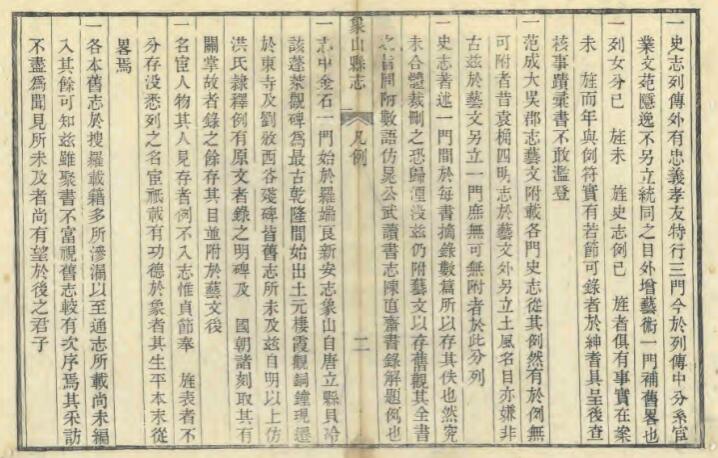 一史志列傳外有忠義孝友特行三門今於列傳中分系官
業文苑隱逸不另立統同之目外增藝術一門補舊畧也
一列女分已　旌未　旌史志例已　旌者俱有事實在案
未　旌而年與例符實有若節可錄者於紳耆具呈後查
核事蹟彙書不敢濫登
一范成大吳郡志藝文附載各門史志從其例然有於例無
可附者昔袁桷四明志於藝文外另立土風名目亦嫌非
古茲於藝文另立一門庶無可無附者於此分列
一史志著述一門間於每書摘錄數篇所以存其佚也然究
未合體裁刪之恐歸湮沒茲仍附藝文以存舊觀其全書
之旨間附數語仿晁公武讀書志陳直齋書錄解題例也
象山縣志　凡例　二
一志中金石一門始於羅端良新安志象山自唐立縣貝冷
該蓬萊觀碑爲最古乾隆間始出土元棲霞觀銅鐘現遷
於東寺及劉敏西谷殘碑皆舊志所未及茲自明以上仿
洪氏隸釋例有原文者錄之明碑及　國朝諸刻取其有
關掌故者錄之餘存其目並附於藝文後
一名宦人物其人見存者例不入志惟貞節奉　旌表者不
分存没悉列之名宦祇載有功德於象者其生平本末從
畧焉
一各本舊志於搜羅載籍多所滲漏以至通志所載尚未編
入其餘可知茲雖聚書不富視舊志較有次序焉其采訪
不盡爲聞見所未及者尚有望於後之君子